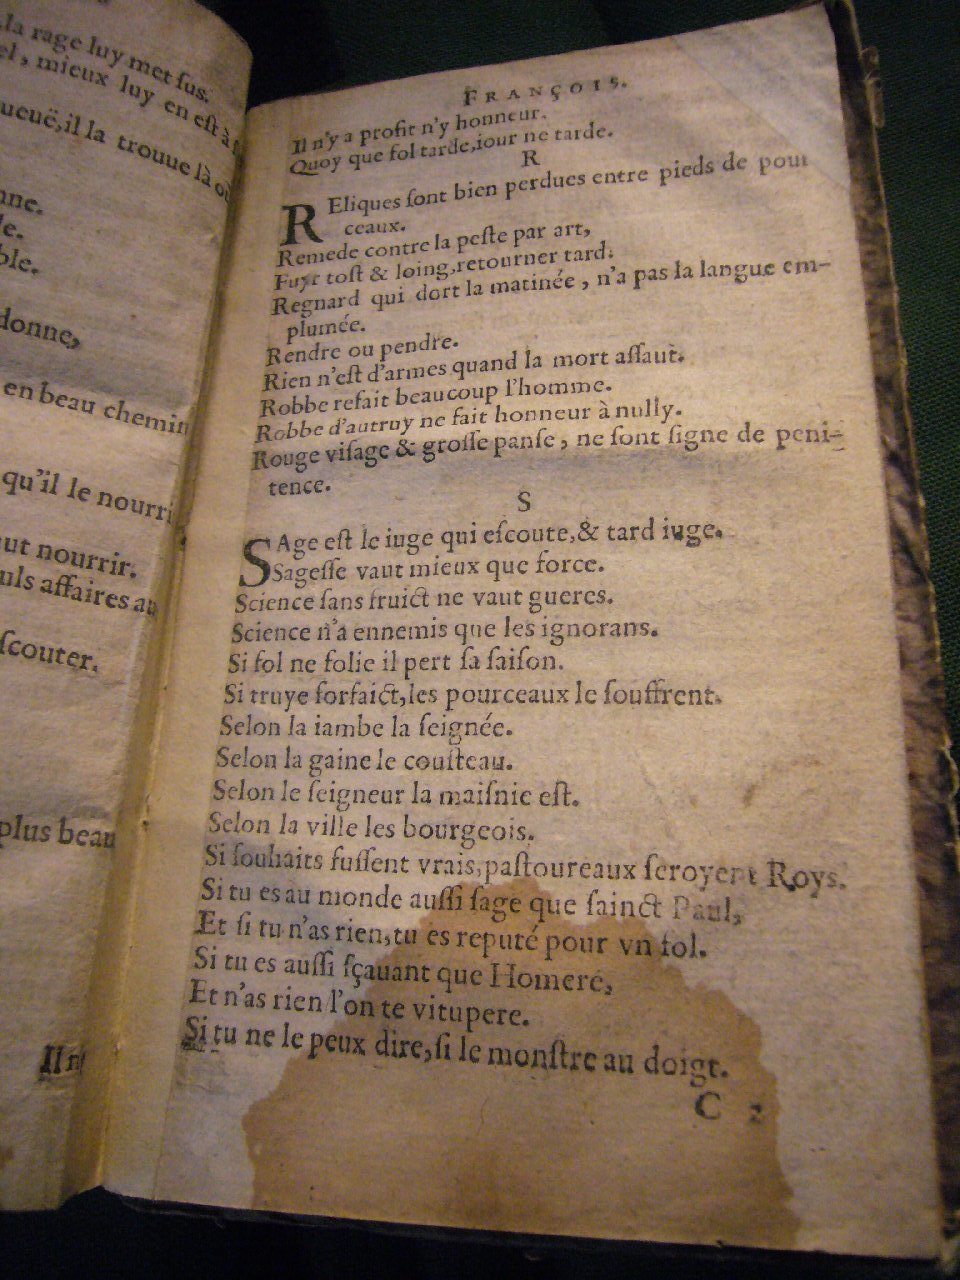 la rage luy met sus.
mieux luy en est à
il la trouue là où
donne,
en beau chemin
qu'il le nourri
nourrir.
affaires au
ſcouter.
plus beau
Il n'
FRANÇOIS.
Il n'y a profit n'y honneur.
Quoy que fol tarde, iour ne tarde.
R
REliques ſont bien perdues entre pieds de pour
ceaux.
Remede contre la peſte par art,
Fuyr toſt & loing, retourner tard.
Regnard qui dort la matinée, n'a pas la langue em-
plumée.
Rendre ou pendre.
Rien n'eſt d'armes quand la mort aſſaut.
Robbe refait beaucoup l'homme.
Robbe d'autruy ne fait honneur à nully.
Rouge viſage & groſſe panſe, ne ſont ſigne de peni-
tence.
S
SAge eſt le iuge qui eſcoute, & tard iuge.
Sageſſe vaut mieux que force.
Science ſans fruict ne vaut gueres.
Science n'a ennemis que les ignorans.
Si fol ne folie il pert ſa ſaiſon.
Si truye forfaict, les pourceaux le ſouffrent.
Selon la iambe la ſeignée.
Selon la gaine le couſteau.
Selon le ſeigneur la maiſnie eſt.
Selon la ville les bourgeois.
Si ſouhaits fuſſent vrais, paſtoureaux ſeroyent Roys.
Si tu es au monde auſſi ſage que ſainct Paul,
Et ſi tu n'as rien, tu es reputé pour vn fol.
Si tu es auſſi ſçauant que Homere,
Et n'as rien l'on te vitupere.
Si tu ne le peux dire, ſi le monſtre au doigt.
C 2